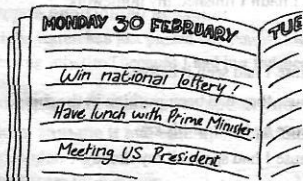 MONDAY 30 FEBRUARY
TUE
Win national lottery!
Have lunch with Prime Minister.
Meeting US President